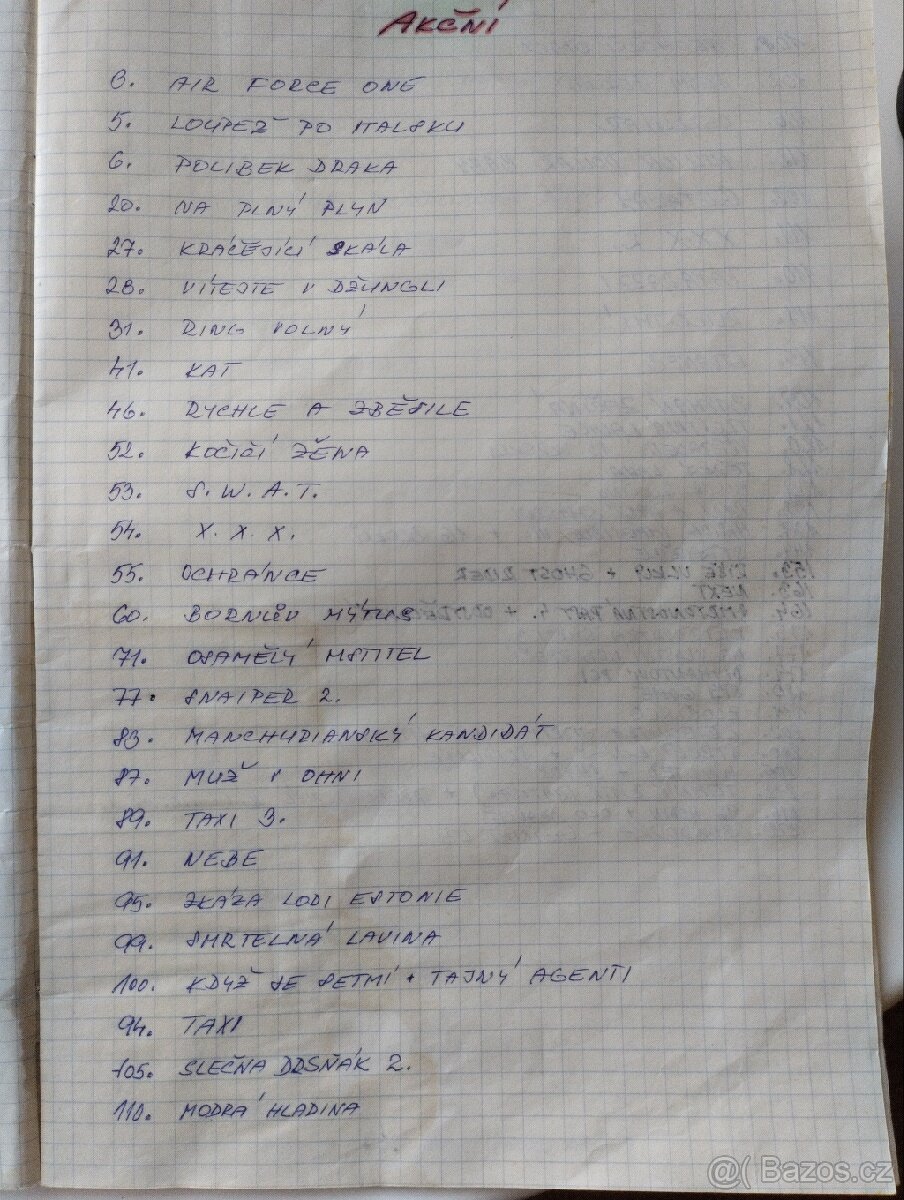 Akční
3. AIR FORCE ONE
5. LOUPEŽ PO ITALSKU
6. POLIBEK DRAKA
20. NA PLNÝ PLYN
27. KRÁČEJÍCÍ SKÁLA
28. VÍTEJTE V DŽUNGLI
31. RING VOLNÝ
41. KAT
46. RYCHLE A ZBĚSILE
52. KOČIČÍ ŽENA
53. S.W.A.T.
54. X.X.X.
55. OCHRÁNCE
60. BORNŮV MÝTUS
71. OSAMĚLÝ MSTITEL
77. SNAIPER 2.
83. MANCHUDIANSKÝ KANDIDÁT
87. MUŽ V OHNI
89. TAXI 3.
91. NEBE
95. ZKÁZA LODI ESTONIE
99. SMRTELNÁ LAVINA
100. KDYŽ SE SETMÍ + TAJNÝ AGENTI
94. TAXI
105. SLEČNA DRSŇÁK 2.
110. MODRÁ HLADINA
@( Bazos.cz